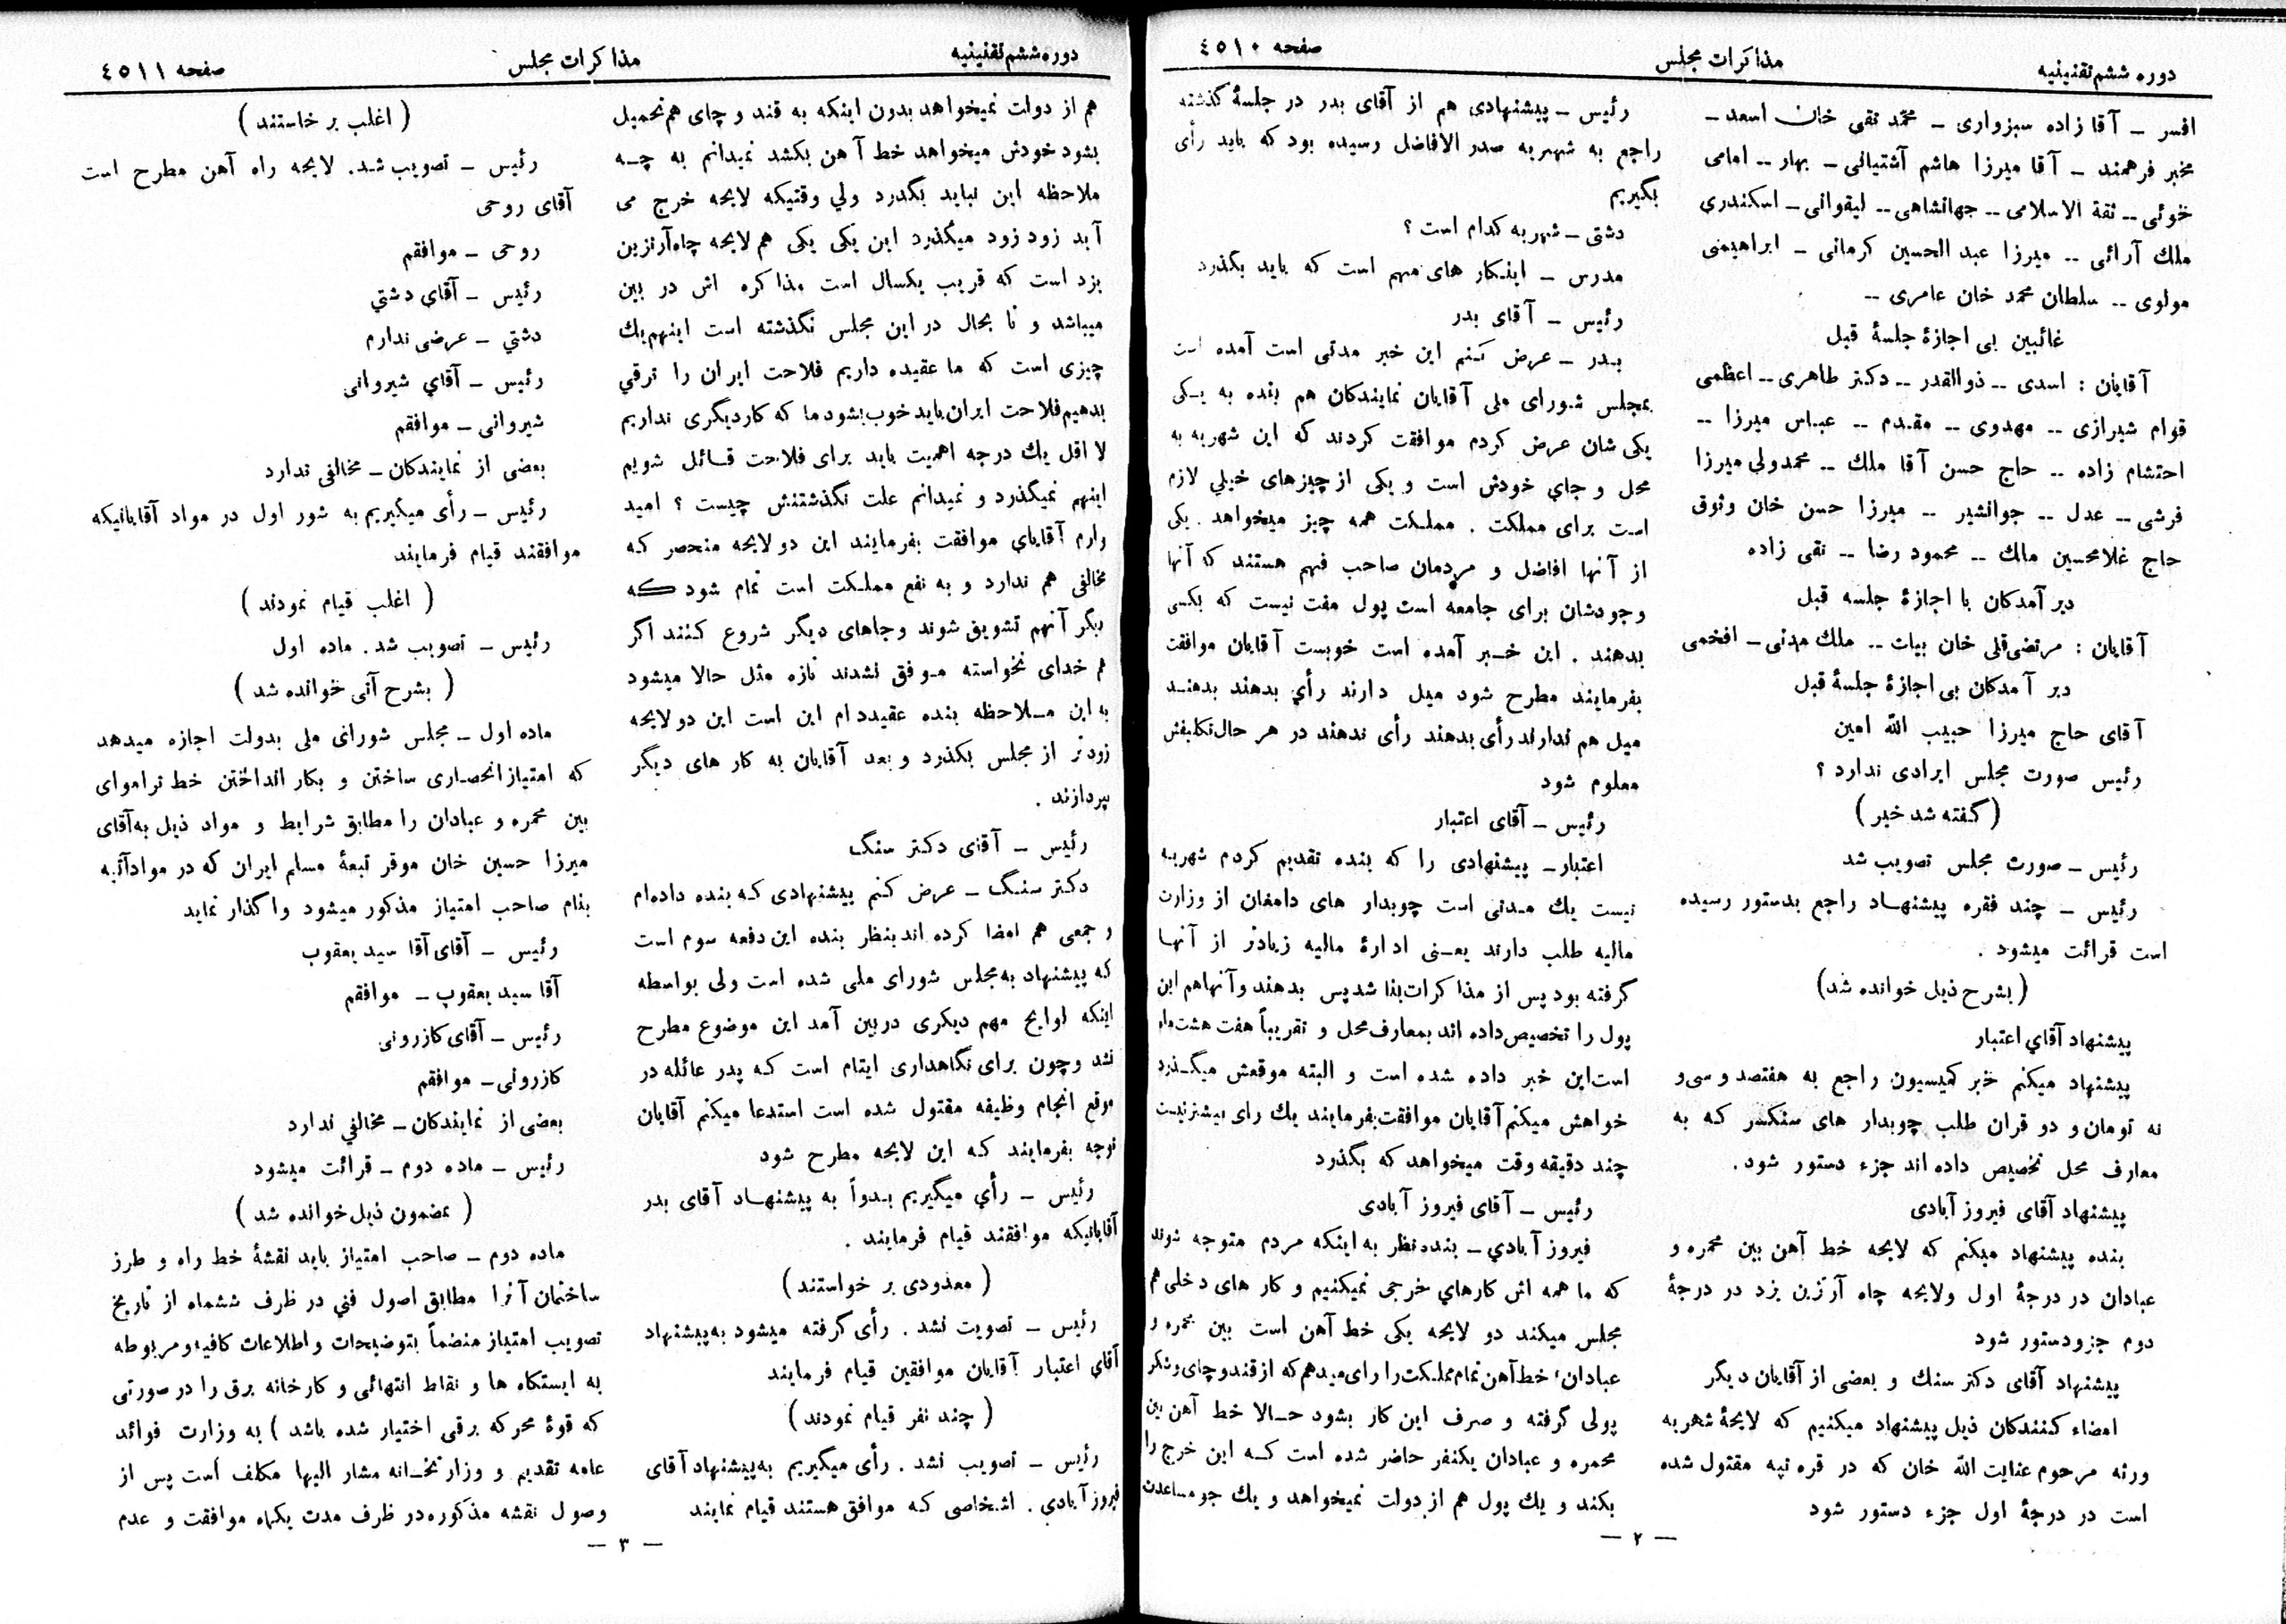 دوره ششم تقنینیه
مذاکرات مجلس
صفحه ٤٥١٠
افسر ــ آقا زاده سبزواری ــ محمد تقی خان اسعد ــ
مخبر فرهمند ــ آقا میرزا هاشم آشتیانی ــ بهار ــ امامی
خوئی ــ ثقة الاسلامی ــ جهانشاهی ــ لیقوانی ــ اسکندری
ملك آرائی ــ میرزا عبد الحسین کرمانی ــ ابراهیمی
مولوی ــ سلطان محمد خان عامری ــ
غائبین بی اجازهٔ جلسهٔ قبل
آقایان : اسدی ــ ذوالقدر ــ دکتر طاهری ــ اعظمی
قوام شیرازی ــ مهدوی ــ مقدم ــ عباس میرزا ــ
احتشام زاده ــ حاج حسن آقا ملك ــ محمدولی میرزا
فرشی ــ عدل ــ جوانشیر ــ میرزا حسن خان وثوق
حاج غلامحسین ملك ــ محمود رضا ــ تقی زاده
دیر آمدکان با اجازهٔ جلسه قبل
آقایان : مرتضی قلی خان بیات ــ ملك مدنی ــ افخمی
دیر آمدکان بی اجازهٔ جلسهٔ قبل
آقای حاج میرزا حبیب الله امین
رئیس صورت مجلس ایرادی ندارد ؟
(کفته شد خیر)
رئیس ــ صورت مجلس تصویب شد
رئیس ــ چند فقره پیشنهاد راجع بدستور رسیده
است قرائت میشود .
(بشرح ذیل خوانده شد)
پیشنهاد آقاي اعتبار
پیشنهاد میکنم خبر کمیسیون راجع به هفتصد و سی و
نه تومان و دو قران طلب چوبدار های سنکسر که به
معارف محل تخصیص داده اند جزء دستور شود .
پیشنهاد آقای فیروز آبادی
بنده پیشنهاد میکنم که لایحه خط آهن بین محمره و
عبادان در درجهٔ اول ولایحه چاه آرتزین یزد در درجهٔ
دوم جزو دستور شود
پیشنهاد آقای دکتر سنك و بعضی از آقایان دیگر
امضاء کنندکان ذیل پیشنهاد میکنیم که لایحهٔ شهریه
ورثه مرحوم عنایت الله خان که در قره تپه مقتول شده
است در درجهٔ اول جزء دستور شود
رئیس ــ پیشنهادی هم از آقای بدر در جلسهٔ گذشته
راجع به شهریه صدر الافاضل رسیده بود که باید رأی
بگیریم
دشتی ــ شهریه کدام است ؟
مدرس ــ اینکار های مهم است که باید بگذرد
رئیس ــ آقای بدر
بدر ــ عرض کنم این خبر مدتی است آمده است
بمجلس شورای ملی آقایان نمایندکان هم بنده به یکی
یکی شان عرض کردم موافقت کردند که این شهریه به
محل و جاي خودش است و یکی از چیزهای خیلي لازم
است برای مملکت . مملکت همه چیز میخواهد . یکی
از آنها افاضل و مردمان صاحب فهم هستند که آنها
وجودشان برای جامعه است پول مفت نیست که بکسی
بدهند . این خبر آمده است خوبست آقایان موافقت
بفرمایند مطرح شود میل دارند رأي بدهند بدهند
میل هم ندارند رأی بدهند رأی ندهند در هر حال تکلیفش
معلوم شود
رئیس ــ آقای اعتبار
اعتبار ــ پیشنهادی را که بنده تقدیم کردم شهریه
نیست یك مدتی است چوبدار های دامغان از وزارت
مالیه طلب دارند یعنی ادارهٔ مالیه زیادتر از آنها
گرفته بود پس از مذاکرات بنا شد پس بدهند و آنها هم این
پول را تخصیص داده اند بمعارف محل و تقریباً هفت هشت ماه
است این خبر داده شده است و البته موقعش میگذرد
خواهش میکنم آقایان موافقت بفرمایند یك رای بیشتر نیست
چند دقیقه وقت میخواهد که بگذرد
رئیس ــ آقای فیروز آبادی
فیروز آبادي ــ بنده نظر به اینکه مردم متوجه شوند
که ما همه اش کارهاي خرجی نمیکنیم و کار های دخلی هم
مجلس میکند دو لایحه یکی خط آهن است بین محمره و
عبادان، خط آهن تمام مملکت را رای میدهم که از قند و چای و شکر
پولی گرفته و صرف این کار بشود حالا خط آهن بین
محمره و عبادان یکنفر حاضر شده است که این خرج را
بکند و یك پول هم از دولت نمیخواهد و یك جو مساعدت
ــ ٢ ــ
دوره ششم تقنینیه
مذاکرات مجلس
صفحه ٤٥١١
هم از دولت نمیخواهد بدون اینکه به قند و چای هم تحمیل
بشود خودش میخواهد خط آهن بکشد نمیدانم به چه
ملاحظه این نباید بگذرد ولي وقتیکه لایحه خرج می
آید زود زود میگذرد این یکی یکی هم لایحه چاه آرتزین
یزد است که قریب یکسال است مذاکره اش در بین
میباشد و تا بحال در این مجلس نگذشته است اینهم یك
چیزی است که ما عقیده داریم فلاحت ایران را ترقي
بدهیم فلاحت ایران باید خوب بشود ما که کار دیگری نداریم
لا اقل یك درجه اهمیت باید برای فلاحت قائل شویم
اینهم نمیگذرد و نمیدانم علت نگذشتنش چیست ؟ امید
وارم آقایای موافقت بفرمایند این دو لایحه منحصر که
مخالفی هم ندارد و به نفع مملکت است تمام شود که
دیگر آنهم تشویق شوند و جاهای دیگر شروع کنند اگر
هم خدای نخواسته موفق نشدند تازه مثل حالا میشود
به این ملاحظه بنده عقیده ام این است این دو لایحه
زودتر از مجلس بکذرد و بعد آقایان به کار های دیگر
بپردازند .
رئیس ــ آقای دکتر سنگ
دکتر سنگ ــ عرض کنم پیشنهادی که بنده داده ام
و جمعی هم امضا کرده اند بنظر بنده این دفعه سوم است
که پیشنهاد به مجلس شورای ملی شده است ولی بواسطه
اینکه لوایح مهم دیکری در بین آمد این موضوع مطرح
نشد و چون برای نگاهداری ایتام است که پدر عائله در
موقع انجام وظیفه مقتول شده است استدعا میکنم آقایان
توجه بفرمایند که این لایحه مطرح شود
رئیس ــ رأي میگیریم بدواً به پیشنهاد آقای بدر
آقایانیکه موافقند قیام فرمایند .
(معدودی بر خواستند)
رئیس ــ تصویت نشد . رأی گرفته میشود به پیشنهاد
آقاي اعتبار آقایان موافقین قیام فرمایند
(چند نفر قیام نمودند)
رئیس ــ تصویب نشد . رأی میگیریم به پیشنهاد آقای
فیروز آبادي . اشخاصی که موافق هستند قیام نمایند
(اغلب بر خاستند)
رئیس ــ تصویب شد . لایحه راه آهن مطرح است
آقای روحی
روحی ــ موافقم
رئیس ــ آقاي دشتي
دشتي ــ عرضی ندارم
رئیس ــ آقاي شیروانی
شیروانی ــ موافقم
بعضی از نمایندکان ــ مخالفی ندارد
رئیس ــ رأی میگیریم به شور اول در مواد آقایانیکه
موافقند قیام فرمایند
(اغلب قیام نمودند)
رئیس ــ تصویب شد . ماده اول
(بشرح آتی خوانده شد)
ماده اول ــ مجلس شورای ملی بدولت اجازه میدهد
که امتیاز انحصاری ساختن و بکار انداختن خط تراموای
بین محمره و عبادان را مطابق شرایط و مواد ذیل به آقای
میرزا حسین خان موقر تبعهٔ مسلم ایران که در مواد آتیه
بنام صاحب امتیاز مذکور میشود واگذار نماید
رئیس ــ آقای آقا سید یعقوب
آقا سید یعقوب ــ موافقم
رئیس ــ آقای کازرونی
کازرونی ــ موافقم
بعضی از نمایندکان ــ مخالفي ندارد
رئیس ــ ماده دوم ــ قرائت میشود
(بمضمون ذیل خوانده شد)
ماده دوم ــ صاحب امتیاز باید نقشهٔ خط راه و طرز
ساختمان آنرا مطابق اصول فني در ظرف ششماه از تاریخ
تصویب امتیاز منضماً بتوضیحات و اطلاعات کافیه و مربوطه
به ایستکاه ها و نقاط انتهائی و کارخانه برق را در صورتی
که قوهٔ محرکه برقی اختیار شده باشد ) به وزارت فوائد
عامه تقدیم و وزارتخانه مشار الیها مکلف است پس از
وصول نقشه مذکوره در ظرف مدت یکماه موافقت و عدم
ــ ٣ ــ